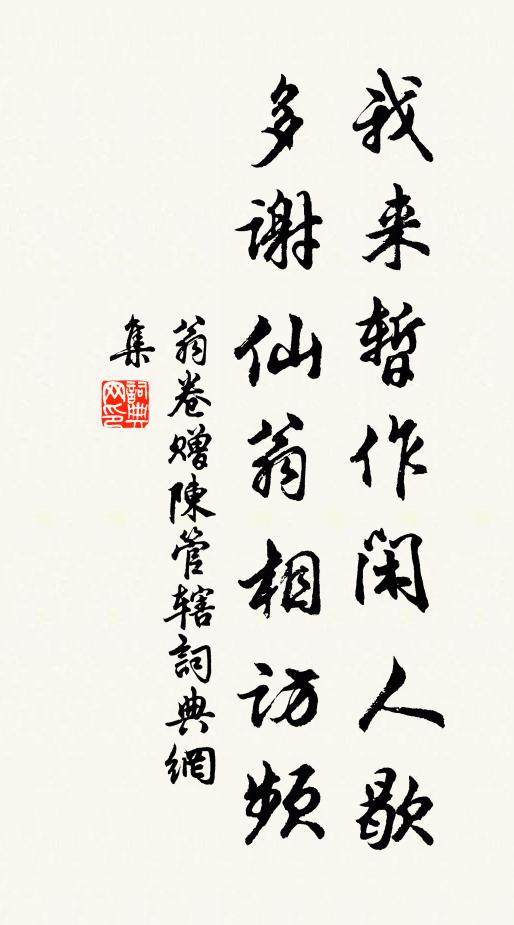 我来暂作闲人歇
多谢仙翁相访频
翁卷赠陈管辖词典网
集
词典网印